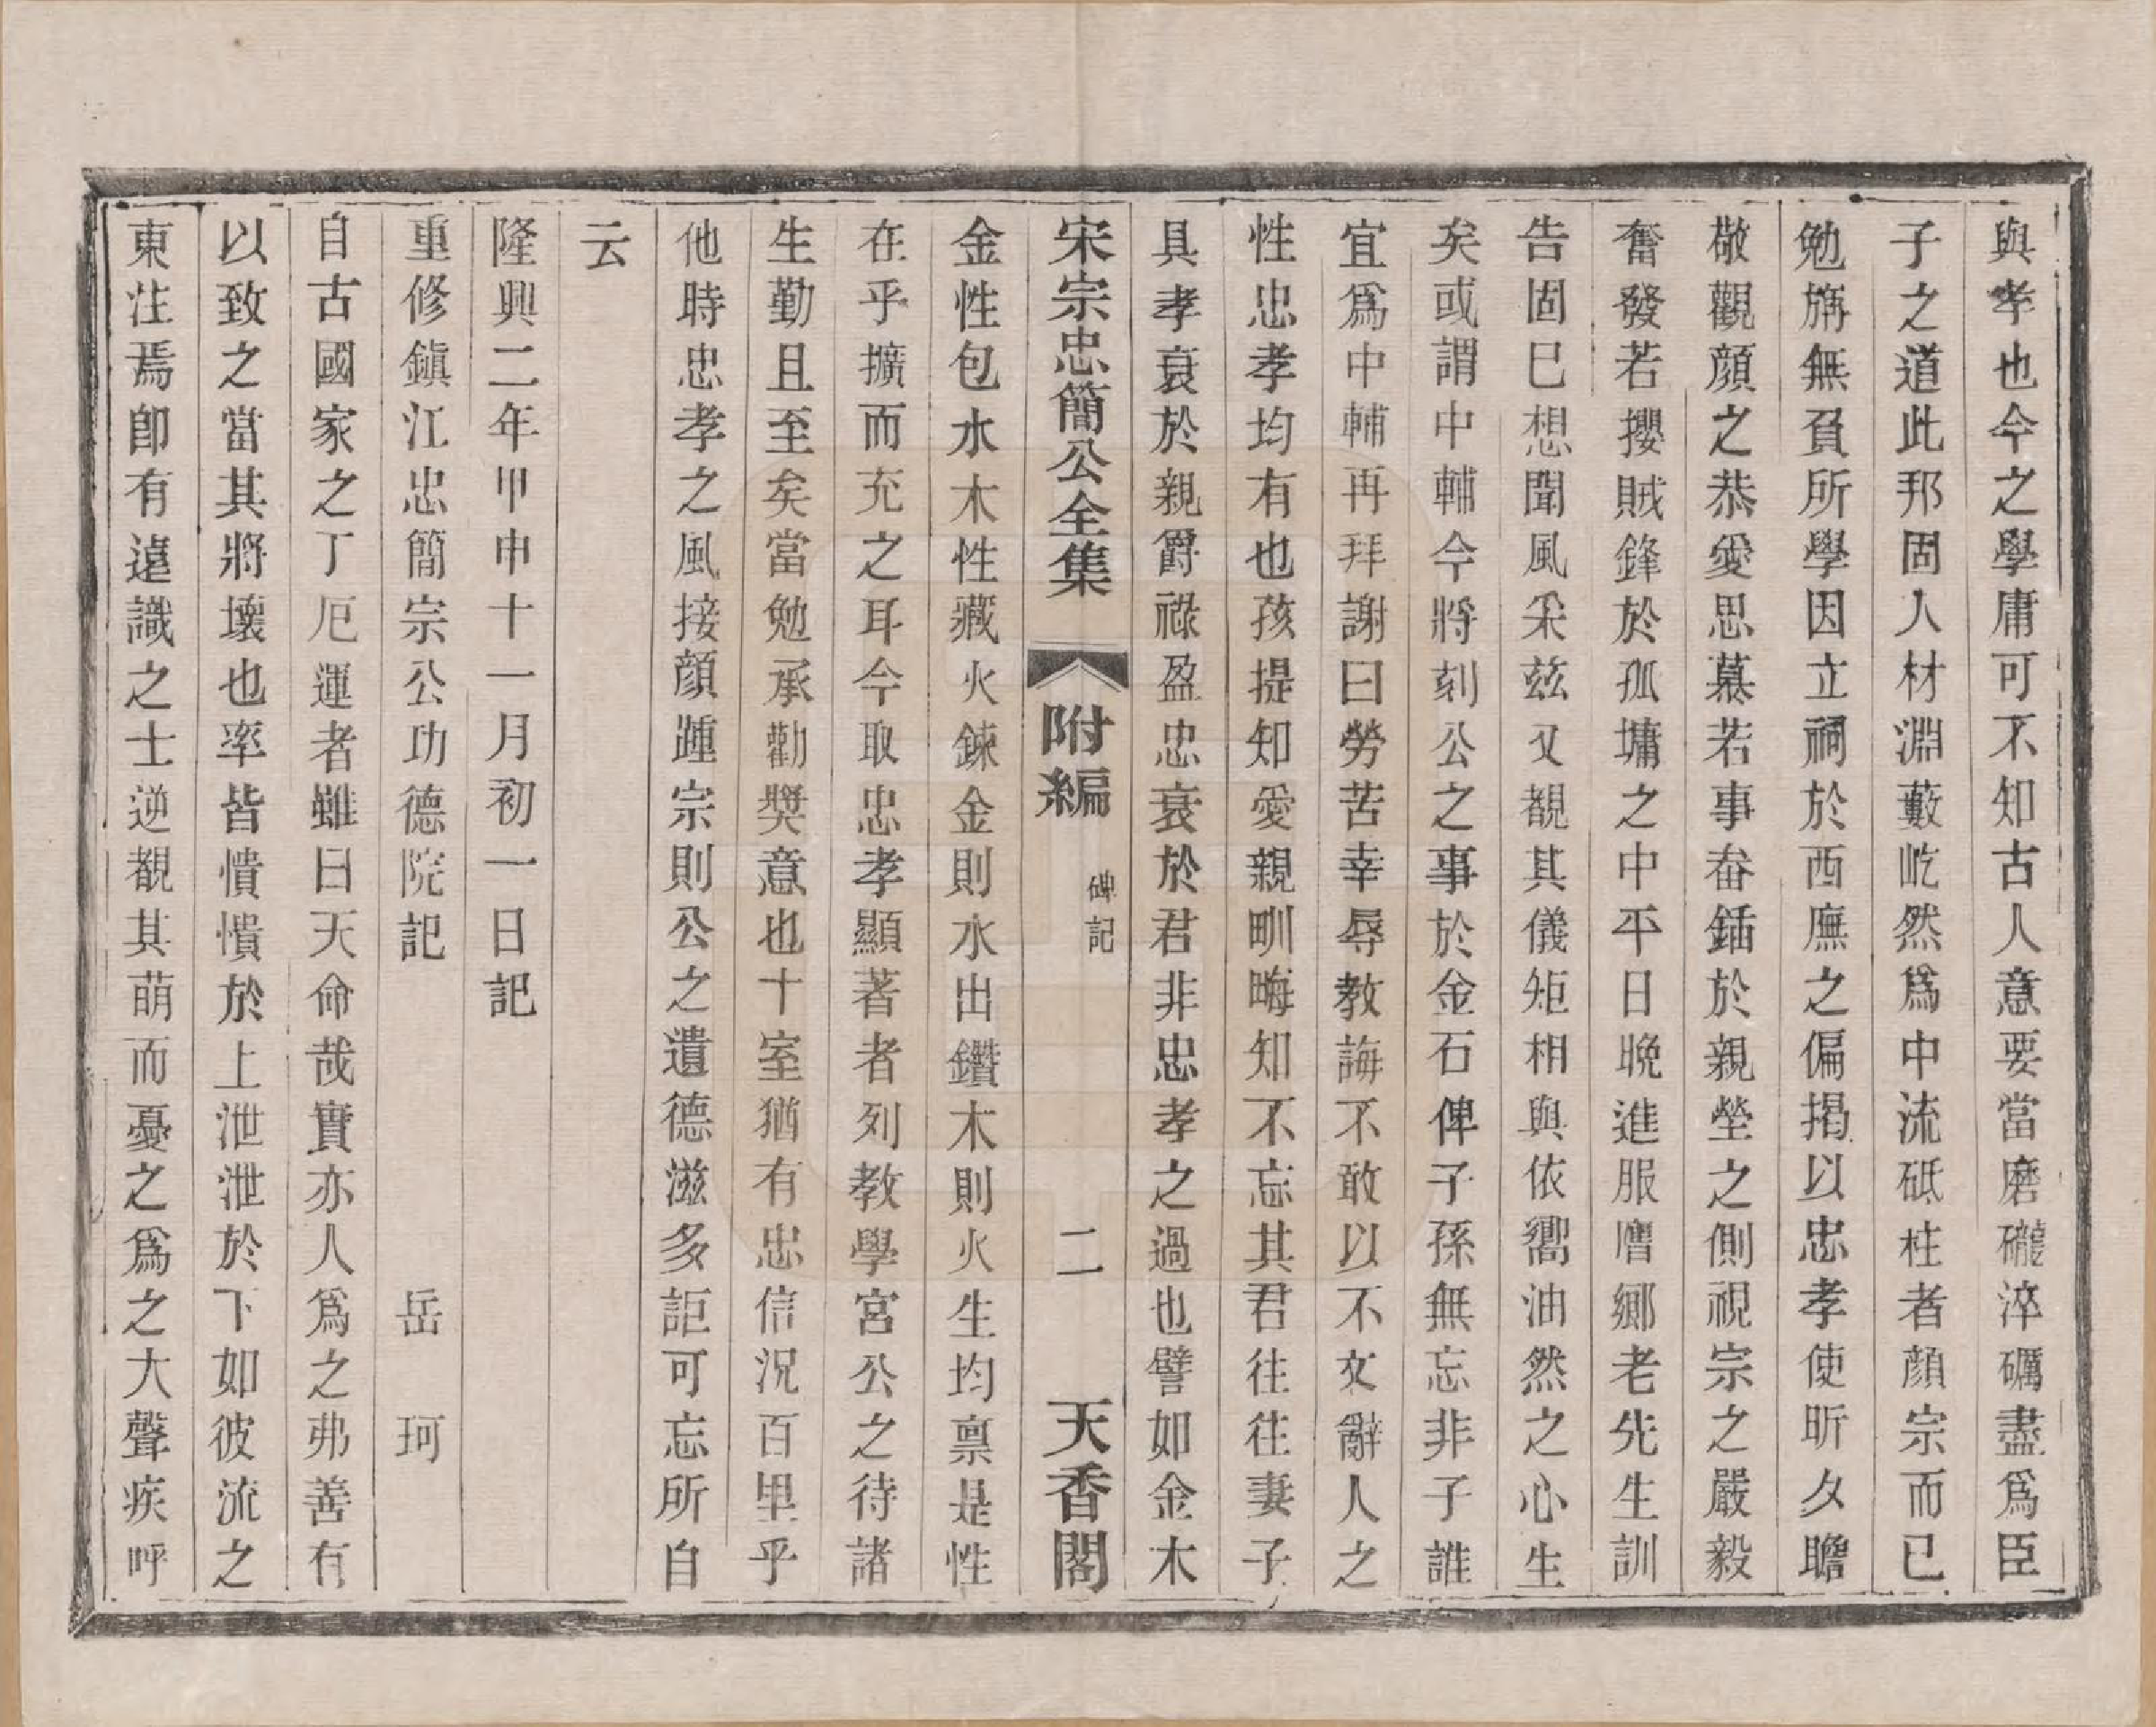 與孝也今之學庸可不知古人意要當磨礲淬礪盡爲臣
子之道此邦固人材淵藪屹然爲中流砥柱者顔宗而已
勉旃無負所學因立祠於西廡之偏揭以忠孝使昕夕瞻
敬觀顔之恭愛思慕若事畚鍤於親塋之側視宗之嚴毅
奮發若攖賊鋒於孤墉之中平日晩進服膺鄉老先生訓
告固已想聞風采兹又覩其儀矩相與依嚮油然之心生
矣或謂中輔今將刻公之事於金石俾子孫無忘非子誰
宜爲中輔再拜謝曰勞苦幸辱教誨不敢以不文辭人之
性忠孝均有也孩提知愛親甽畮知不忘其君往往妻子
具孝衰於親爵祿盈忠衰於君非忠孝之過也譬如金木
宋宗忠簡公全集 附編 碑記 二 天香閣
金性包水木性藏火鍊金則水出鑽木則火生均禀是性
在乎擴而充之耳今取忠孝顯著者列教學宮公之待諸
生勤且至矣當勉承勸奬意也十室猶有忠信況百里乎
他時忠孝之風接顔踵宗則公之遺德滋多詎可忘所自
云
隆興二年甲申十一月初一日記
重修鎮江忠簡宗公功德院記 岳 珂
自古國家之丁厄運者雖曰天命哉實亦人爲之弗善有
以致之當其將壞也率皆憒憒於上泄泄於下如彼流之
東注焉卽有遠識之士逆覩其萌而憂之爲之大聲疾呼